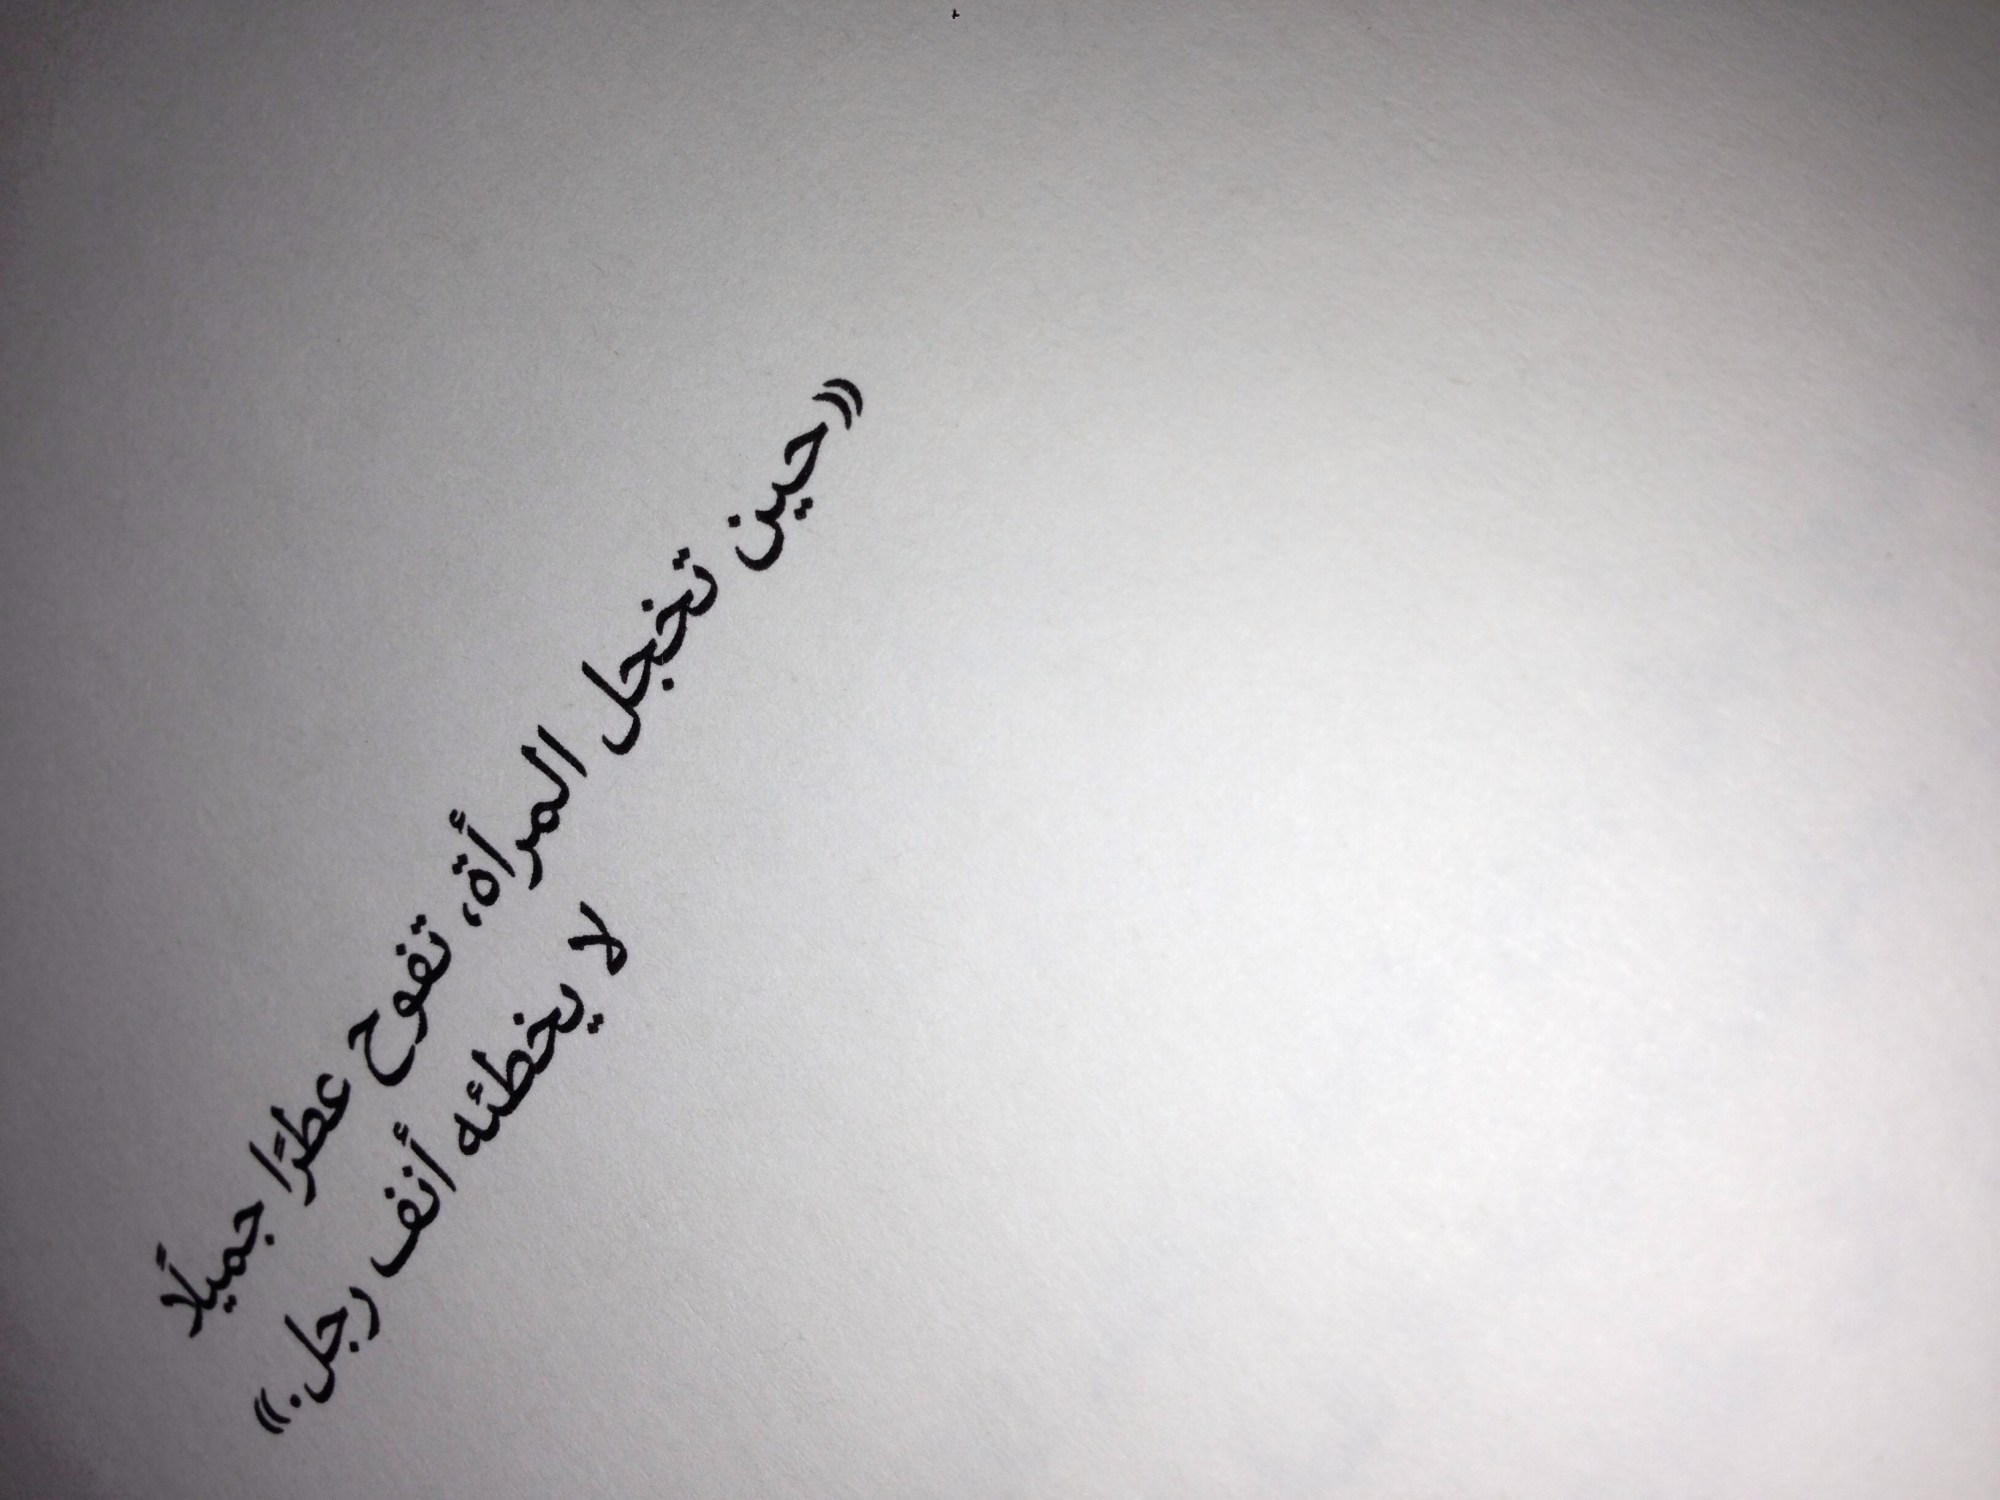 «حين تخجل المرأة، تفوح عطرًا جميلًا
لا يخطئه أنف رجل.»